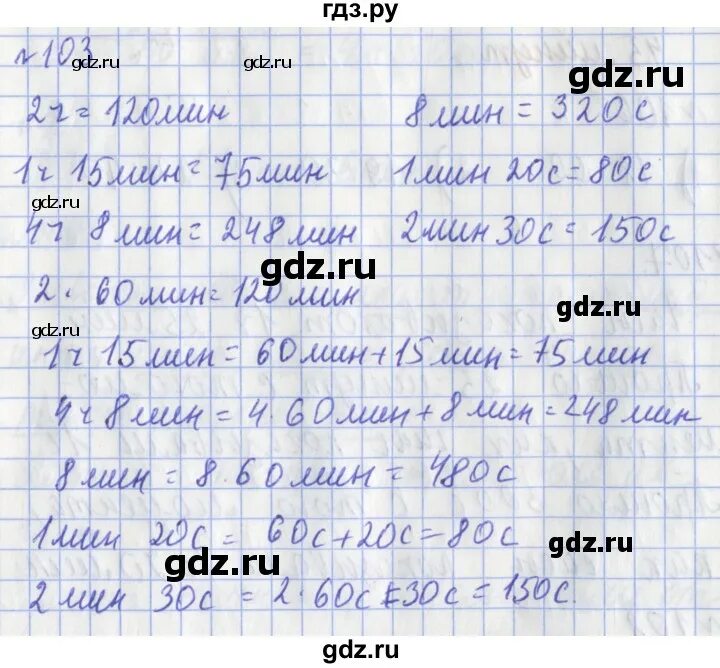 гдз.ру
№103
gdz.ru
gdz.ru
gdz.ru
2ч = 120мин 8мин = 320с
1ч 15мин = 75мин 1мин 20с = 80с
gdz.ru
4ч 8мин = 248мин 2мин 30с = 150с
gdz.ru
2 · 60мин = 120мин
gdz.ru
gdz.ru
1ч 15мин = 60мин + 15мин = 75мин
4ч 8мин = 4 · 60мин + 8мин = 248мин
gdz.ru
8мин = 8 · 60мин = 480с
1мин 20с = 60с + 20с = 80с
gdz.ru
gdz.ru
2мин 30с = 2 · 60с + 30с = 150с.
gdz.ru